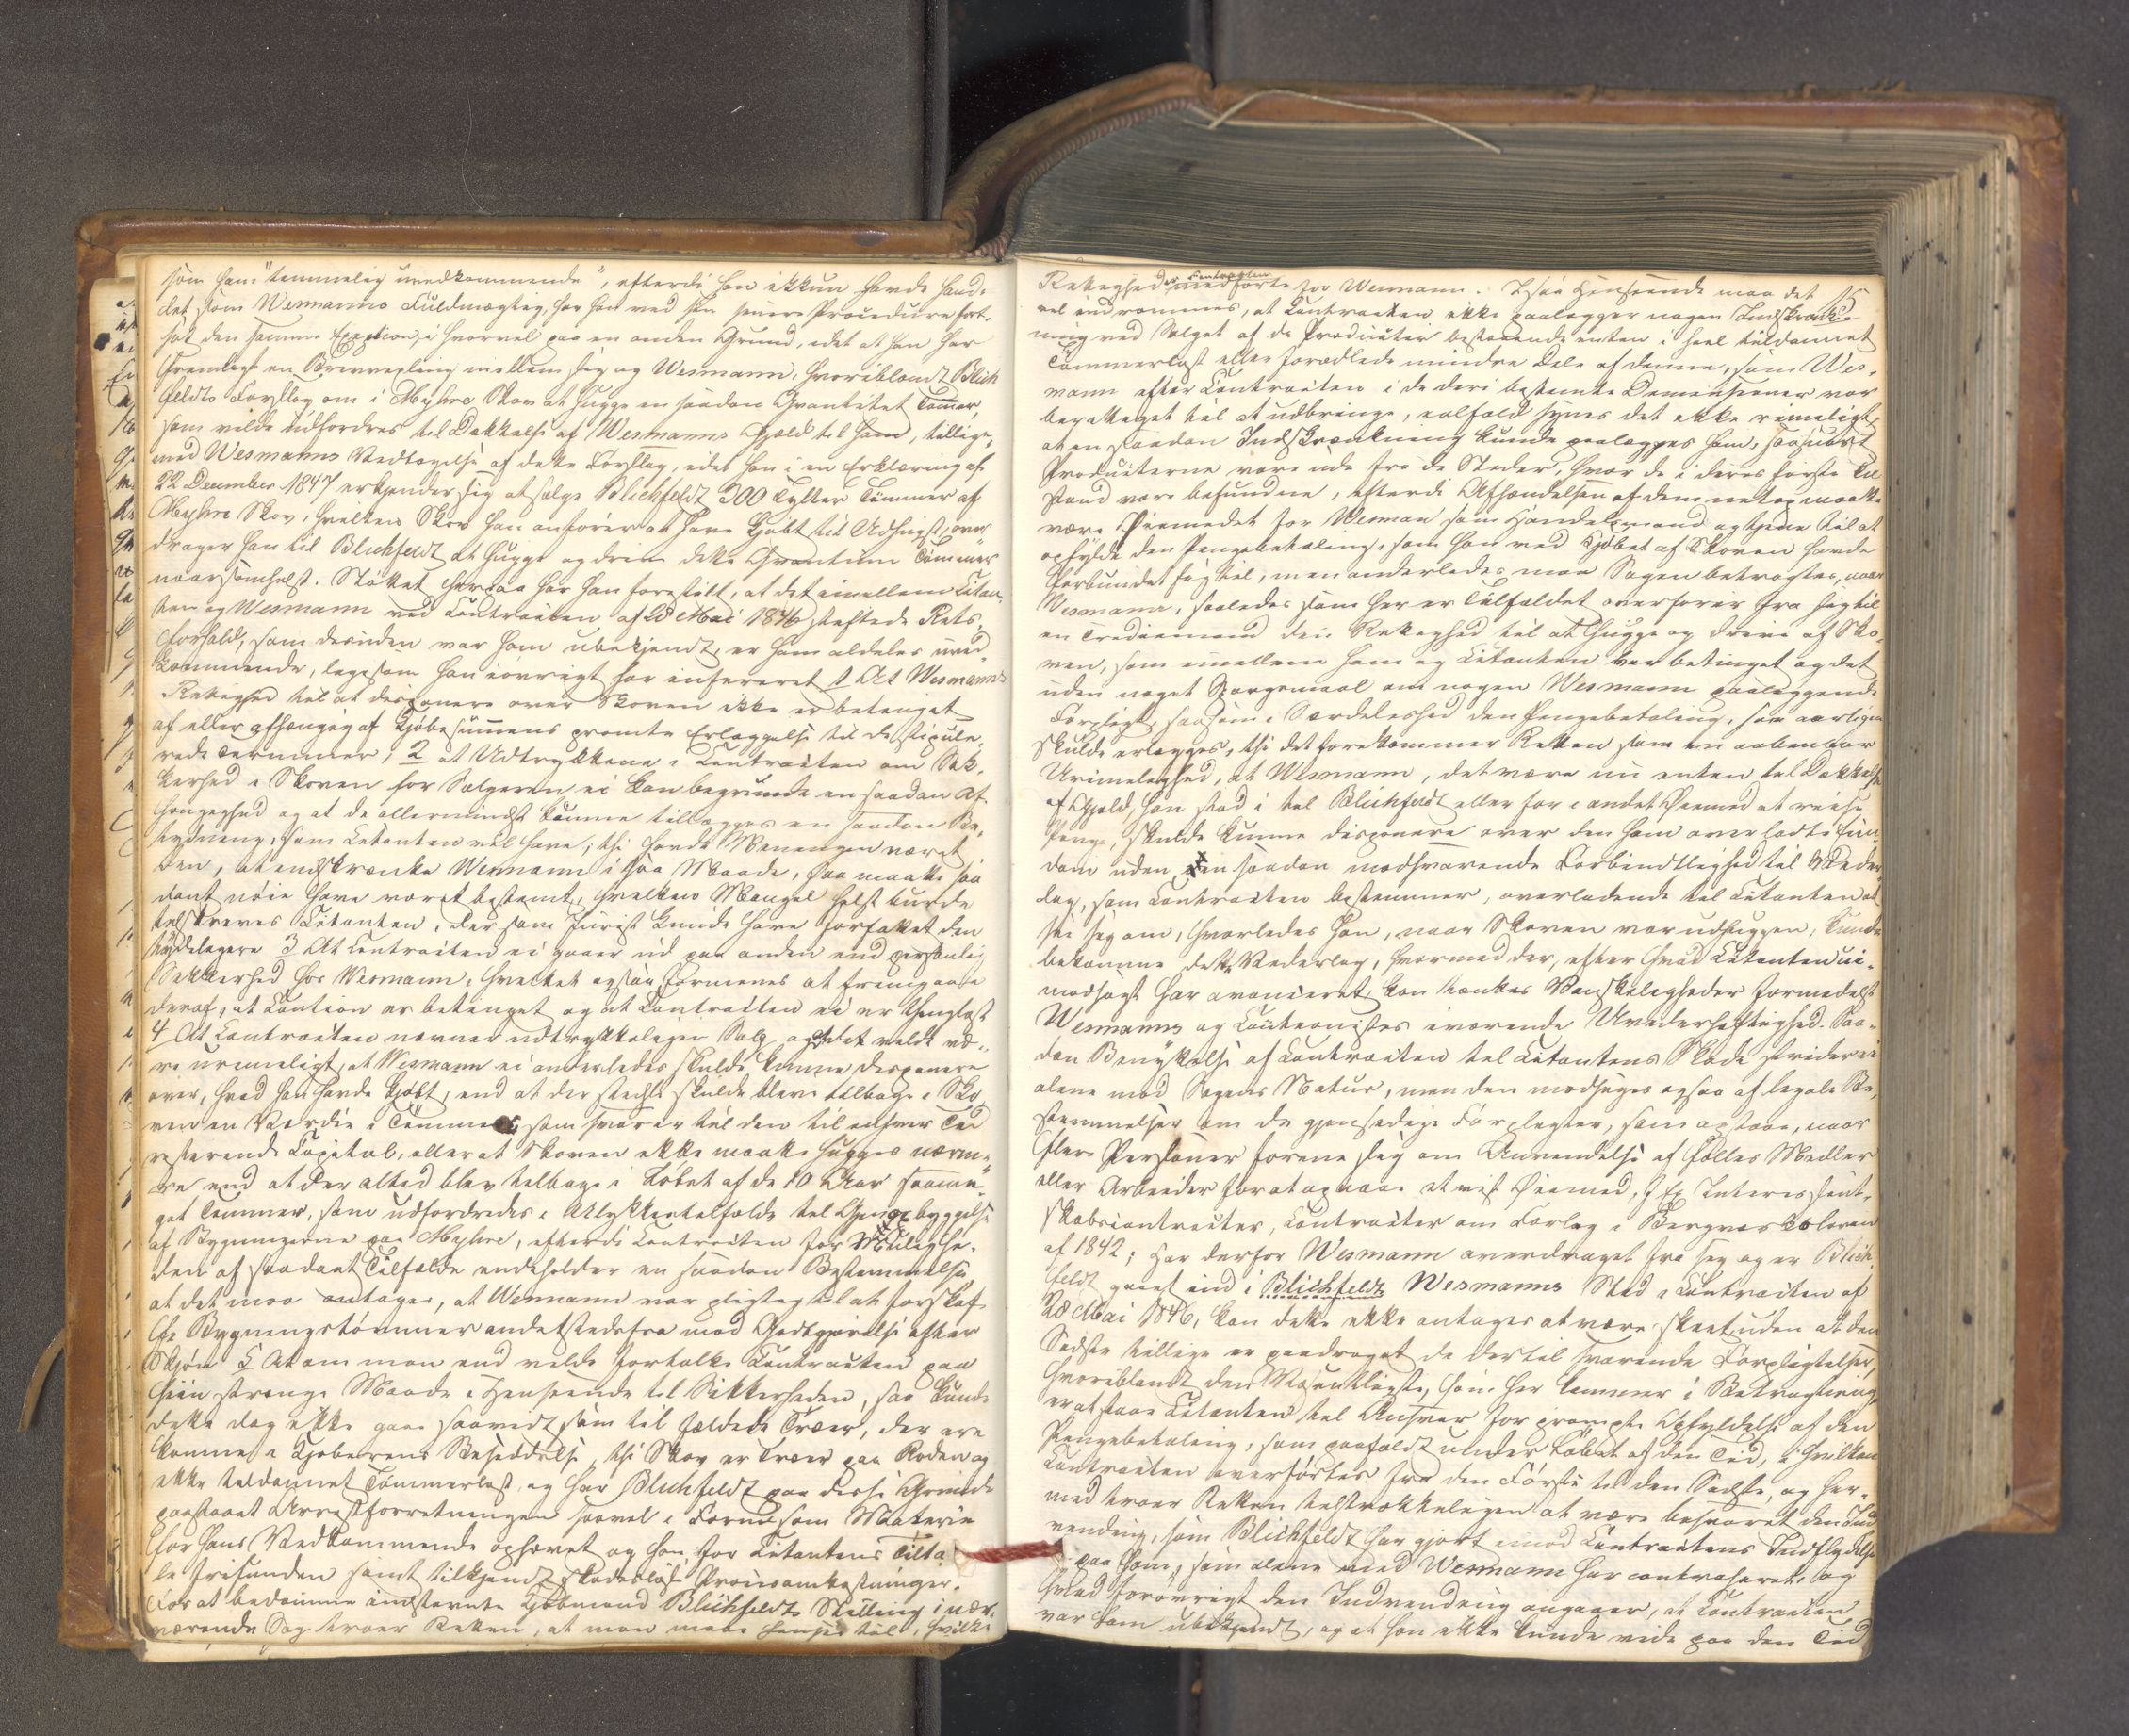 som ham "temmelig uvedkommende", efterdi han ikkun havde hand-
let som Wesmanns Fuldmægtig, har han ved sin senere Procedure fort-
sat den samme Exeption, i hvorvel paa en anden Grund, idet at han har
fremlagt en Brevvexling mellem sig og Wesmann, hvoriblandt Blich
feldts Forslag om i Myhre Skov at hugge en saadan Qvantitet Tømmer,
som vilde udfordres til Dækkelse af Wesmanns Gjæld til ham, tillige-
med Wesmanns Vedtagelse af dette Forslag, idet han i en Erklæring af
22 December 1847 erkjender sig at sælge Blichfeldt 300 Tylter Tømmer af
Myhre Skov, hvilken Skov han anfører at have kjøbt til Udhugst, over
drager han til Blichfeldt at hugge og drive dette Qvantum Tømmer
naarsomhelst. Støttet herpaa har han forestilt, at det imellem Citan-
ten og Wesmann ved Contracten af 28 Mai 1846 stiftede Rets-
forhold, som desuden var ham ubekjendt, er ham aldeles uved-
kommende, ligesom han iøvrigt har infereret 1 At Wesmanns
Rettighed til at disponere over Skoven ikke er betinget
af eller afhængig af Kjøbesummens promte Erlæggelse til de stipule-
rede Terminer; 2 at Udtrykkene i Contracten om Sik-
kerhed i Skoven for Sælgeren ei kan begrunde en saadan Af-
hængighed og at de allermindst kunne tillægges en saadan Be-
tydning, som Citanten vil have; thi havde Meningen været
den, at indskrænke Wesmann i saa Maade, saa maatte saa
dant nøie have været bestemt, hvilken Mangel helst burde
tilskrives Citanten, der som Jurist kunde have forfattet den
tydeligere 3 At Contracten ei gaaer ud paa anden end personlig
Sikkerhed hos Wesmann, hvilket ogsaa formenes at fremgaae
deraf, at Caution er betinget og at Contracten ei er thinglæst
4 At Contracten nævner udtrykkeligen Salg, og at det vilde væ-
re urimeligt, at Wesmann ei anderledes skulde kunne disponere
over, hvad han havde kjøbt, end at der stedse skulde blive tilbage i Sko-
ven en Værdie i Tømmer, som svarer til den til enhver Tid
resterende Capital, eller at Skoven ikke maatte hugges nærme-
re end at der altid blev tilbage i Løbet af de 10 Aar saame-
get Tømmer, som udfordredes i Ulykkestilfælde til Gjenopbyggelse
af Bygningerne paa Myhre, efterdi Contracten for Mulighe-
den af saadant Tilfælde indeholder en saadan Bestemmelse
at det maa antages, at Wesmann var pligtig til at forskaf-
fe Bygningstømmer andetstedsfra mod Godtgjørelse efter
Skjøn 5 At om man end vilde fortolke Contracten paa
hiin strenge Maade i Henseende til Sikkerheden, saa kunde
dette dog ikke gaae saavidt som til fældede Træer, der ere
komne i Kjøberens Besiddelse, thi Skov er Træer paa Roden og
ikke tildannet Tømmerlast, og har Blichfeldt paa disse Grunde
paastaaet Arrestforretningen saavel i Form som Materie
for hans Vedkommende ophævet og han for Citantens Tilta-
le frifunden samt tilkjendt skadesløse Procesomkostninger.
For at bedømme indstevnte Kjøbmand Blichfeldts Stilling i nær-
værende Sag troer Retten, at man maa hensee til, hvilke
Rettigheder Contracten medførte for Wesmann. I saa Henseende maa det
15
vel indrømmes, at Contracten ikke paalægger nogen Indskrænk-
ning ved Salget af de Producter bestaaende enten i heel tildannet
Tømmerlast eller forædlede mindre Dele af denne, som Wes-
mann efter Contracten i de deri bestemte Dimensioner var
berettiget til at udbringe, ialfald synes det ikke rimeligt,
at en saadan Indskrænkning kunde paalægges ham, saasnart
Producterne vare ude fra de Steder, hvor de i deres første Til
stand vare befundne, efterdi Afhændelsen af dem netop maatte
være Øiemedet for Wesman som Handelsmand og tjene til at
opfylde den Pengebetaling, som han ved Kjøbet af Skoven havde
forbundet sig til, men anderledes maa Sagen betragtes, naar
Wesmann, saaledes som her er Tilfældet overfører fra sig til
en Trediemand den Rettighed til at hugge og drive af Sko-
ven, som imellem ham og Citanten var betinget og det
uden noget Spørgsmaal om nogen Wesmann paaliggende
Forpligt, saasom i Særdeleshed den Pengebetaling, som aarligen
skulde erlægges, thi det forekommer Retten som en aabenbar
Urimelighed, at Wesmann, det være nu enten til Dækkelse
af Gjæld, han stod i til Blichfeldt eller for i andet Øiemed at reise
Penge, skulde kunne disponere over den ham overladte Eien
dom uden en saadan modsvarende Forbindtlighed til Veder
lag, som Contracten bestemmer, overladende til Citanten at
see sig om, hvorledes han, naar Skoven var udhuggen, kunde
bekomme dette Vederlag, hvormed der, efter hvad Citanten ui-
modsagt har avanceret, kan tænkes Vanskeligheder formedelst
Wesmanns og Cautionisters iværende Uvederheftighed. Saa-
dan Benyttelse af Contracten til Citantens Skade strider ei
alene mod Sagens Natur, men den modsiges ogsaa af legale Be-
stemmelser om de gjensidige Forpligter, som opstaae, naar
flere Personer forene sig om Anvendelse af fælles Midler
eller Arbeider for at opnaae et vist Øiemed, f Ex Interessent-
skabscontracter, Contracter om Forlag i Bergværksloven
af 1842; Har derfor Wesmann overdraget fra sig og er Blich
feldt gaaet ind i Blichfeldts Wesmanns Sted i Contracten af
28 Mai 1846, kan dette ikke antages at være skeet, uden at den
Sidste tillige er paadraget de dertil svarende Forpligtelser,
hvoriblandt den Væsentligste, som her kommer i Betragtning,
er at staae Citanten til Ansvar for prompte Opfyldelse af den
Pengebetaling, som paafaldt under Løbet af den Tid, i hvilken
Contracten overførtes fra den Første til den Sidste, og her-
med troer Retten tilstrækkeligen at være besvaret den Ind
vending, som Blichfeldt har gjort imod Contractens Indflydelse
paa ham, som alene med Wesmann har contraheret, og
hvad forøvrigt den Indvending angaaer, at Contracten
var ham ubekjendt, og at han ikke kunde vide paa den Tid